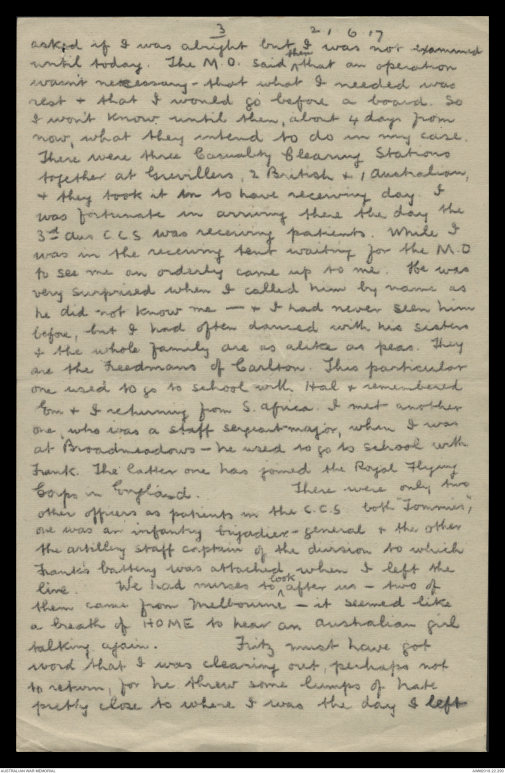 3 21.6.17
asked if I was alright but then I was not examined
until today. The M.O. said that an operation
wasn't necessary - that what I needed was
rest + that I would go before a board. So
I won't know until then, about 4 days from
now, what they intend to do in my case.
There were three Casualty Clearing Stations
together at Grevillers, 2 British + 1 Australian,
+ they took it in to have receiving day. I
was fortunate in arriving there the day the
3rd Aus C.C.S was receiving patients. While I
was in the receiving tent waiting for the M.O
to see me an orderly came up to me. He was
very surprised when I called him by name as
he did not know me — + I had never seen him
before, but I had often danced with his sisters
+ the whole family are as alike as peas. They
are the Freedmans of Carlton. This particular
one used to go to school with Hal + remembered
Em + I returning from S. Africa. I met another
one, who was a staff sergeant-major, when I was
at Broadmeadows - he used to go to school with
Frank. The latter one has joined the Royal Flying
Corps in England. There were only two
other officers as patients in the C.C.S both "Tommies",
one was an infantry brigadier-general + the other
the artillery staff captain of the division to which
Frank's battery was attached when I left the
line. We had nurses to look after us - two of
them came from Melbourne - it seemed like
a breath of HOME to hear an Australian girl
talking again. Fritz must have got
word that I was clearing out, perhaps not
to return, for he threw some lumps of hate
pretty close to where I was the day I left
AUSTRALIAN WAR MEMORIAL